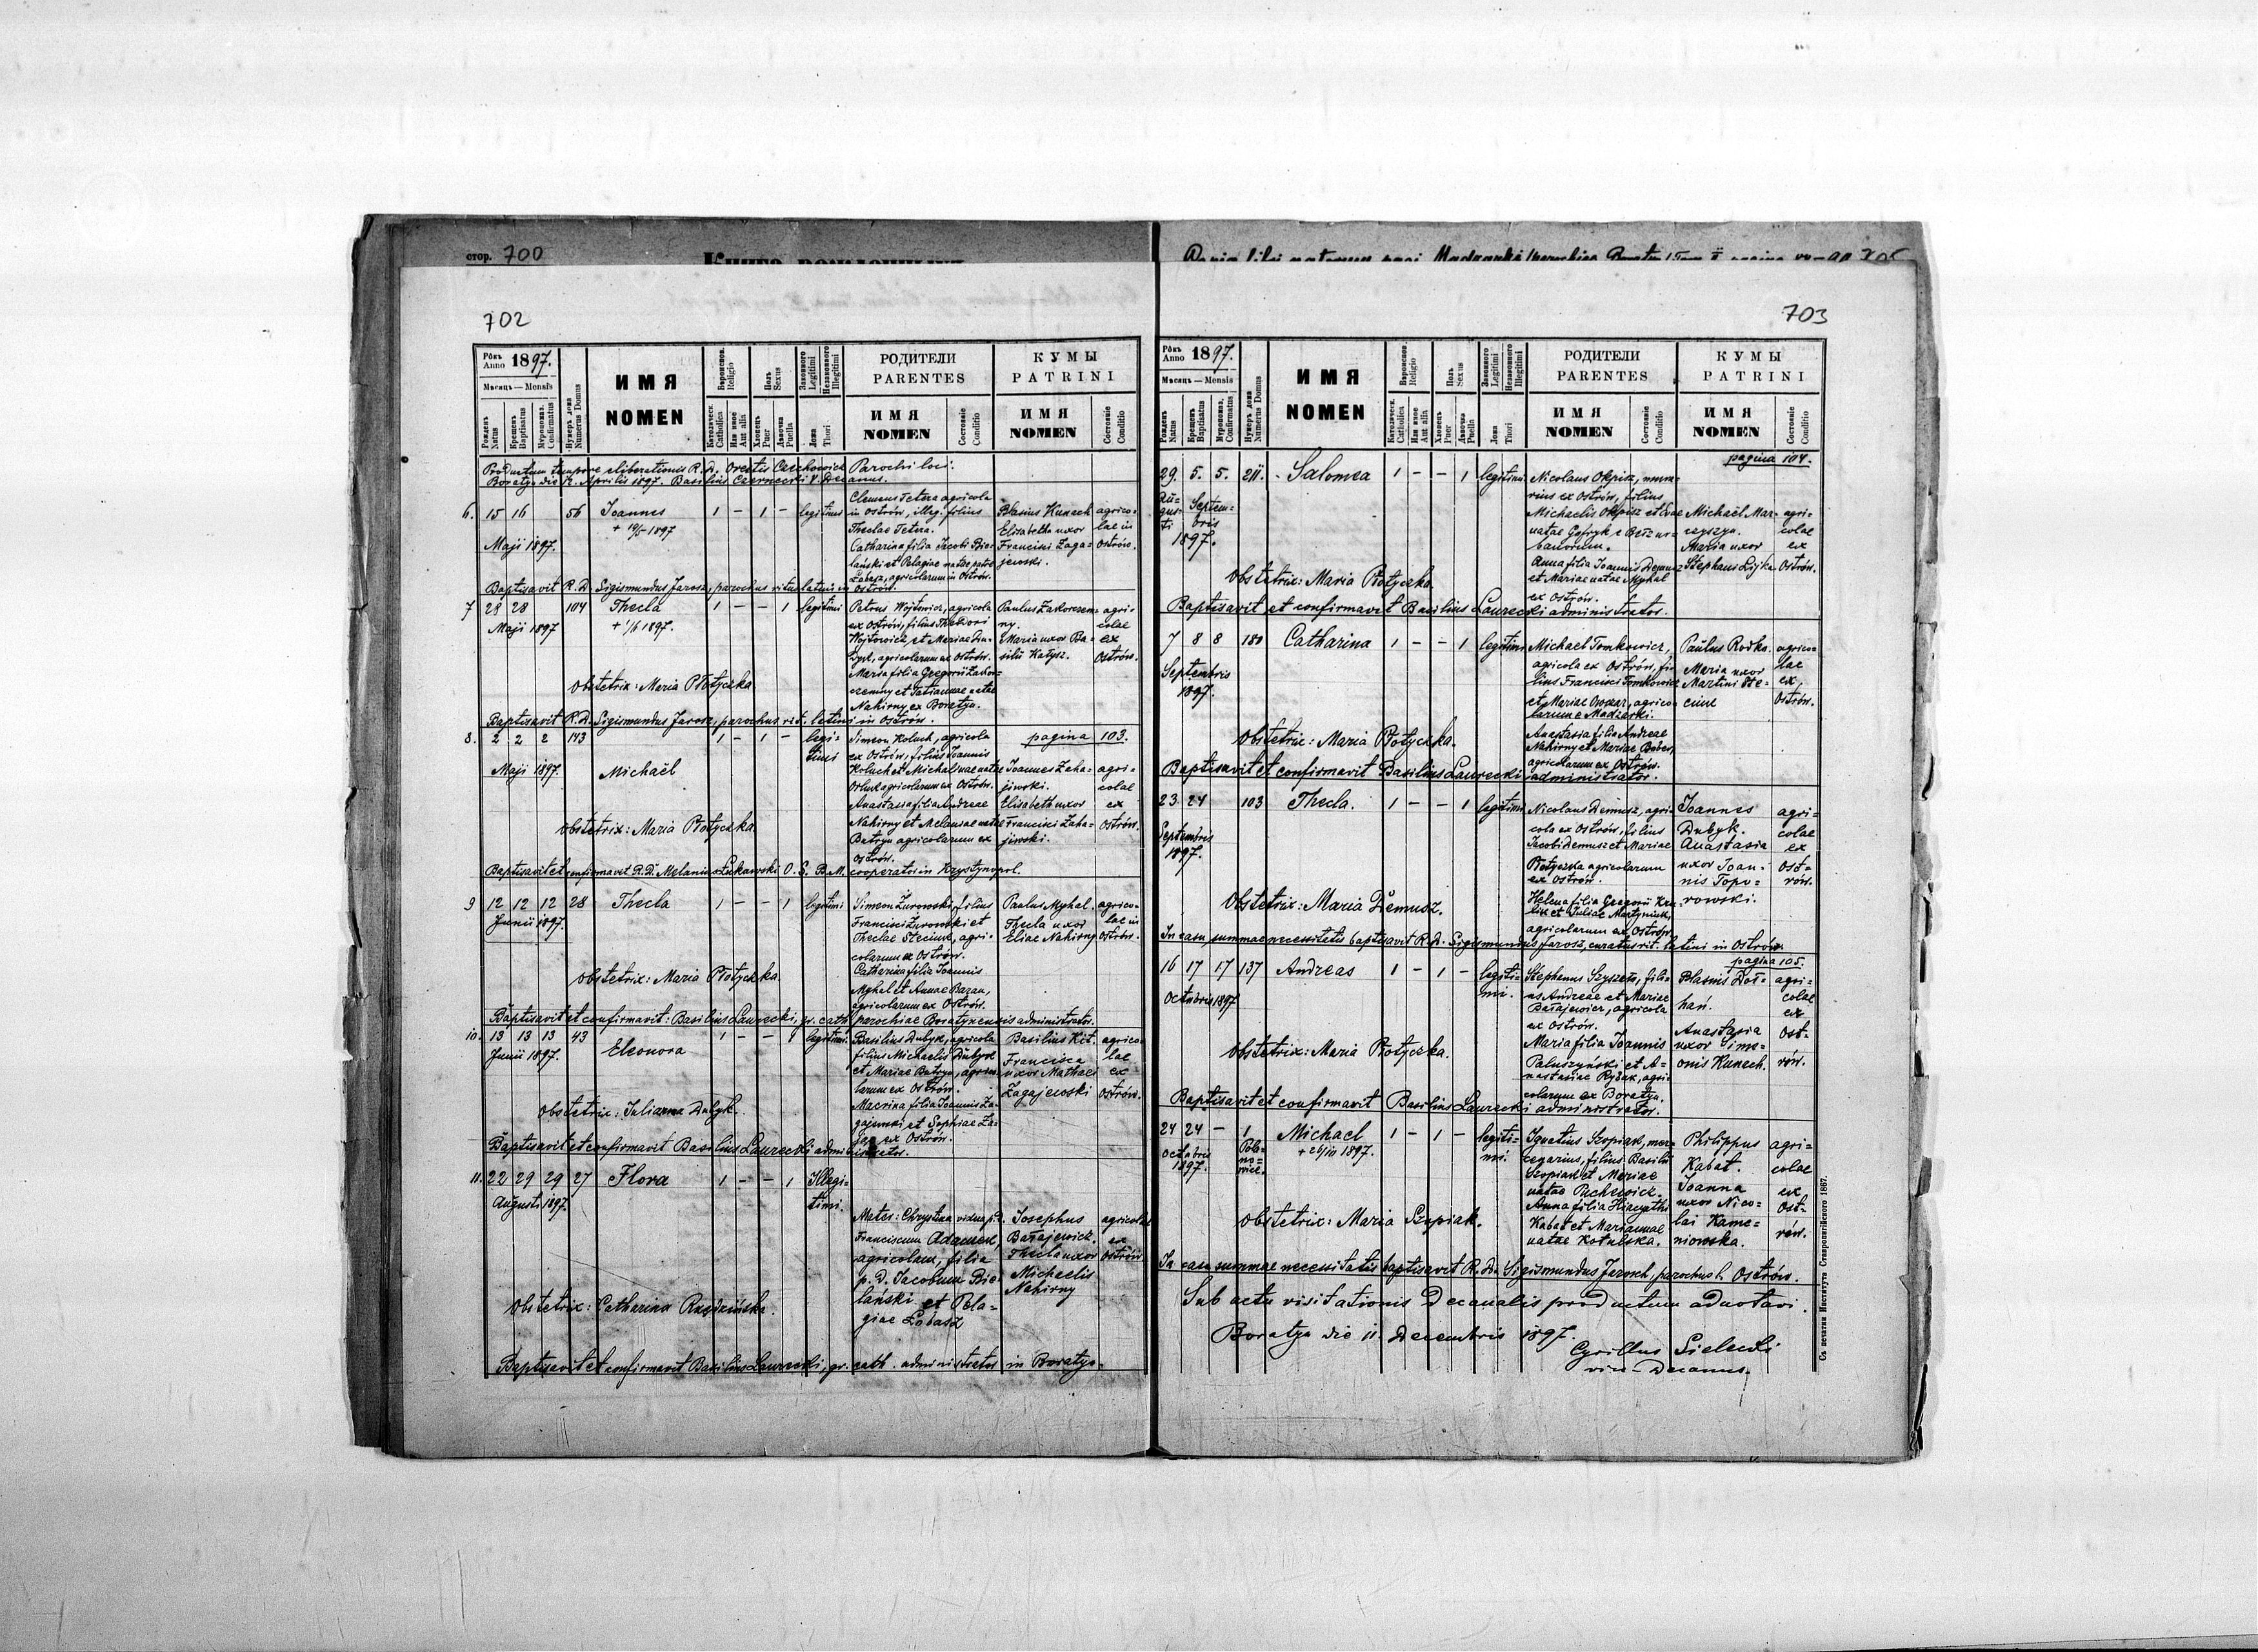 стор. 700
702
Рôкъ Anno 1897.
Мѣсяцъ — Mensis
Рожденъ Natus
Крещенъ Baptisatus
Мѵропомаз. Confirmatus
Нумеръ дома Numerus Domus
ИМЯ
NOMEN
Вѣроиспов. Religio
Католическ. Catholica
Или иное Aut alia
Полъ Sexus
Хлопецъ Puer
Дѣвочка Puella
Законного Legitimi
Незаконного Illegitimi
Ложа Thori
РОДИТЕЛИ
PARENTES
ИМЯ
NOMEN
Состоянiе Conditio
КУМЫ
PATRINI
ИМЯ
NOMEN
Состоянiе Conditio
Productum tempore eliberationis R. D. Orestis Czechowicz Parochi loci.
Boratyn die 12. Aprilis 1897. Basilius Czernecki V. Decanus.
6. 15 16 56 Joannes 1 – 1 – legitimus
+ 19/5 1897
Maji 1897.
Clemens Tetera agricola
in Ostrów, illeg. filius
Theclae Tetera.
Catharina filia Jacobi Bie-
lański et Pelagiae natae
Łabasz, agricolarum in Ostrów.
Blasius Kunach
Elisabetha uxor
Francisci Zaga-
jewski.
agrico-
lae in
Ostrów.
Baptisavit R. D. Sigismundus Jarosz, parochus ritus latini in Ostrów.
7 28 28 104 Thecla 1 – – 1 legitimi
Maji 1897 + 1/6 1897.
Petrus Wojtowicz, agricola
ex Ostrów, filius Theodori
Wojtowicz, et Mariae
agricolarum ex Ostrów.
Maria filia Gregorii
et Tatiannae natae
Nahirny ex Boratyn.
Paulus Zakorczem-
ny.
Maria uxor Ba-
silii Katysz.
agri-
colae
ex
Ostrów.
Obstetrix: Maria Płotyczka.
Baptisavit R. D. Sigismundus Jarosz, parochus rit. latini in Ostrów.
8. 2 2 2 143 1 – 1 – legi-
timi
Maji 1897. Michaël
Simeon Koluch, agricola
ex Ostrów, filius Joannis
Koluch et Michalinae natae
agricolarum ex Ostrów.
Anastasia filia Andreae
Nahirny et Melaniae natae
Batryn agricolarum ex
Ostrów.
pagina 103.
Joannes Zaha-
jewski.
Elisabeth uxor
Francisci Zaha-
jewski.
agri-
colae
ex
Ostrów.
Obstetrix: Maria Płotyczka.
Baptisavit et confirmavit R. D. Melanius Łukawski O. S. B. M. cooperator in Krystynopol.
9 12 12 12 28 Thecla 1 – – 1 legitimi
Junii 1897.
Simeon Żurowski, filius
Francisci Żurowski et
Theclae Steciuk, agri-
colarum ex Ostrów.
Catharina filia Joannis
Myhal et Annae Bazan,
agricolarum ex Ostrów.
Paulus Myhal.
Thecla uxor
Eliae Nahirny
agrico-
lae in
Ostrów.
Obstetrix: Maria Płotyczka.
Baptisavit et confirmavit: Basilius Laurecki, gr. cath. parochiae Boratynensis administrator.
10. 13 13 13 43 1 – – 1 legitimi.
Junii 1897. Eleonora
Basilius Dubyk, agricola
filius Michaelis Dubyk
et Mariae Batryn, agrico-
larum ex Ostrów.
Macrina filia Joannis Za-
gajewski et Sophiae
ex Ostrów.
Basilius Kit.
Francisca
uxor Mathaei
Zagajewski
agrico-
lae
ex
Ostrów.
Obstetrix: Julianna Dubyk.
Baptisavit et confirmavit Basilius Laurecki administrator.
11. 22 29 29 27 Flora 1 – – 1 Illegi-
timi.
Augusti 1897.
Mater: Chrystina vidua p. d.
Franciscum Adamek,
agricolam, filia
p. d. Jacobum Bie-
lański et Pela-
giae Łabasz
Josephus
Barajewicz.
Thecla uxor
Michaelis
Nahirny
agricolae
ex
Ostrów
Obstetrix: Catharina Rudzińska.
Baptisavit et confirmavit Basilius Laurecki, gr. cath. administrator in Boratyn.
703
Рôкъ Anno 1897.
Мѣсяцъ — Mensis
Рожденъ Natus
Крещенъ Baptisatus
Мѵропомаз. Confirmatus
Нумеръ дома Numerus Domus
ИМЯ
NOMEN
Вѣроиспов. Religio
Католическ. Catholica
Или иное Aut alia
Полъ Sexus
Хлопецъ Puer
Дѣвочка Puella
Законного Legitimi
Незаконного Illegitimi
Ложа Thori
РОДИТЕЛИ
PARENTES
ИМЯ
NOMEN
Состоянiе Conditio
КУМЫ
PATRINI
ИМЯ
NOMEN
Состоянiе Conditio
pagina 104.
29. 5. 5. 211. Salomea 1 – – 1 legitimi.
Au-
gus-
ti
Septem-
bris
1897.
Nicolaus Okpisz,
ex Ostrów, filius
Michaelis Okpisz et Evae
natae
Anna filia Joannis Demusz
et Mariae natae Myhal
ex Ostrów.
Michaël Mar-
cyszyn.
Maria uxor
Stephani Lojka
agri-
colae
ex
Ostrów.
Obstetrix: Maria Płotyczka
Baptisavit et confirmavit Basilius Laurecki administrator.
7 8 8 180 Catharina 1 – – 1 legitimi
Septembris
1897.
Michael Tomkowicz,
agricola ex Ostrów, fi-
lius Francisci Tomkowicz
et Mariae agrico-
larum e Madziarki.
Anastasia filia Andreae
Nahirny et Mariae
agricolarum ex Ostrów.
Paulus Rodka.
Maria uxor
Martini Ste-
ciuk
agrico-
lae
ex
Ostrów.
Obstetrix: Maria Płotyczka.
Baptisavit et confirmavit Basilius Laurecki administrator.
23 24 103 Thecla. 1 – – 1 legitimi
Septembris
1897.
Nicolaus Demusz, agri-
cola ex Ostrów, filius
Jacobi Demusz et Mariae
Płotyczka agricolarum
ex Ostrów.
Helena filia Gregorii
et Juliae Martyniuk,
agricolarum ex Ostrów.
Joannes
Dubyk.
Anastasia
uxor Joan-
nis Topo-
rowski.
agri-
colae
ex
Ost-
rów.
Obstetrix: Maria Demusz.
In casu summae necessitatis baptisavit R. D. Sigismundus Jarosz, curatus rit. latini in Ostrów.
pagina 105.
16 17 17 137 Andreas 1 – 1 – legiti-
mi.
Octobris 1897
Stephanus Szyszen, fili-
us Andreae et Mariae
Barajewicz, agricola
ex Ostrów.
Maria filia Joannis
Paluszyński et A-
nastasiae Rybak, agri-
colarum ex Boratyn.
Blasius Doł-
hań.
Anastasia
uxor Sime-
onis Kunach.
agri-
colae
ex
Ost-
rów.
Obstetrix: Maria Płotyczka.
Baptisavit et confirmavit Basilius Laurecki administrator.
24 24 – 1 Michael 1 – 1 – legiti-
mi.
Octobris
1897.
+ 26/10 1897.
Ignatius Szopiak, mer-
cenarius, filius Basilii
Szopiak et Mariae
natae Puchewicz.
Anna filia Hiacynthi
Kabat et Mariannae
natae Kotulska.
Philippus
Kabat.
Joanna
uxor Nico-
lai Kame-
niowska.
agri-
colae
ex
Ost-
rów.
Obstetrix: Maria Szopiak.
In casu summae necessitatis baptisavit R. D. Sigismundus Jarosch, parochus l. Ostrów.
Sub actu visitationis Decanalis productum adnotavi.
Boratyn die 11. Decembris 1897.
Cyrillus Sielecki
vice-Decanus.
Съ печатни Института Ставропигiйского 1867.